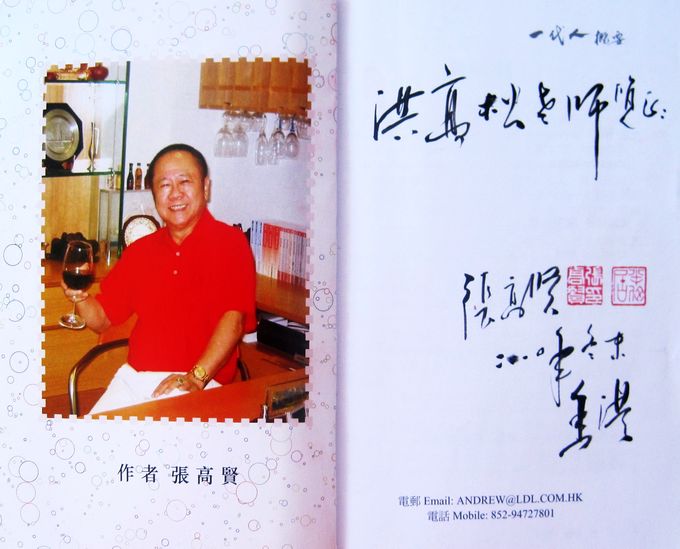 作者 張高賢
一代人
洪高松老師
張高賢
年冬末
香港
電郵 Email: ANDREW@LDL.COM.HK
電話 Mobile: 852-94727801